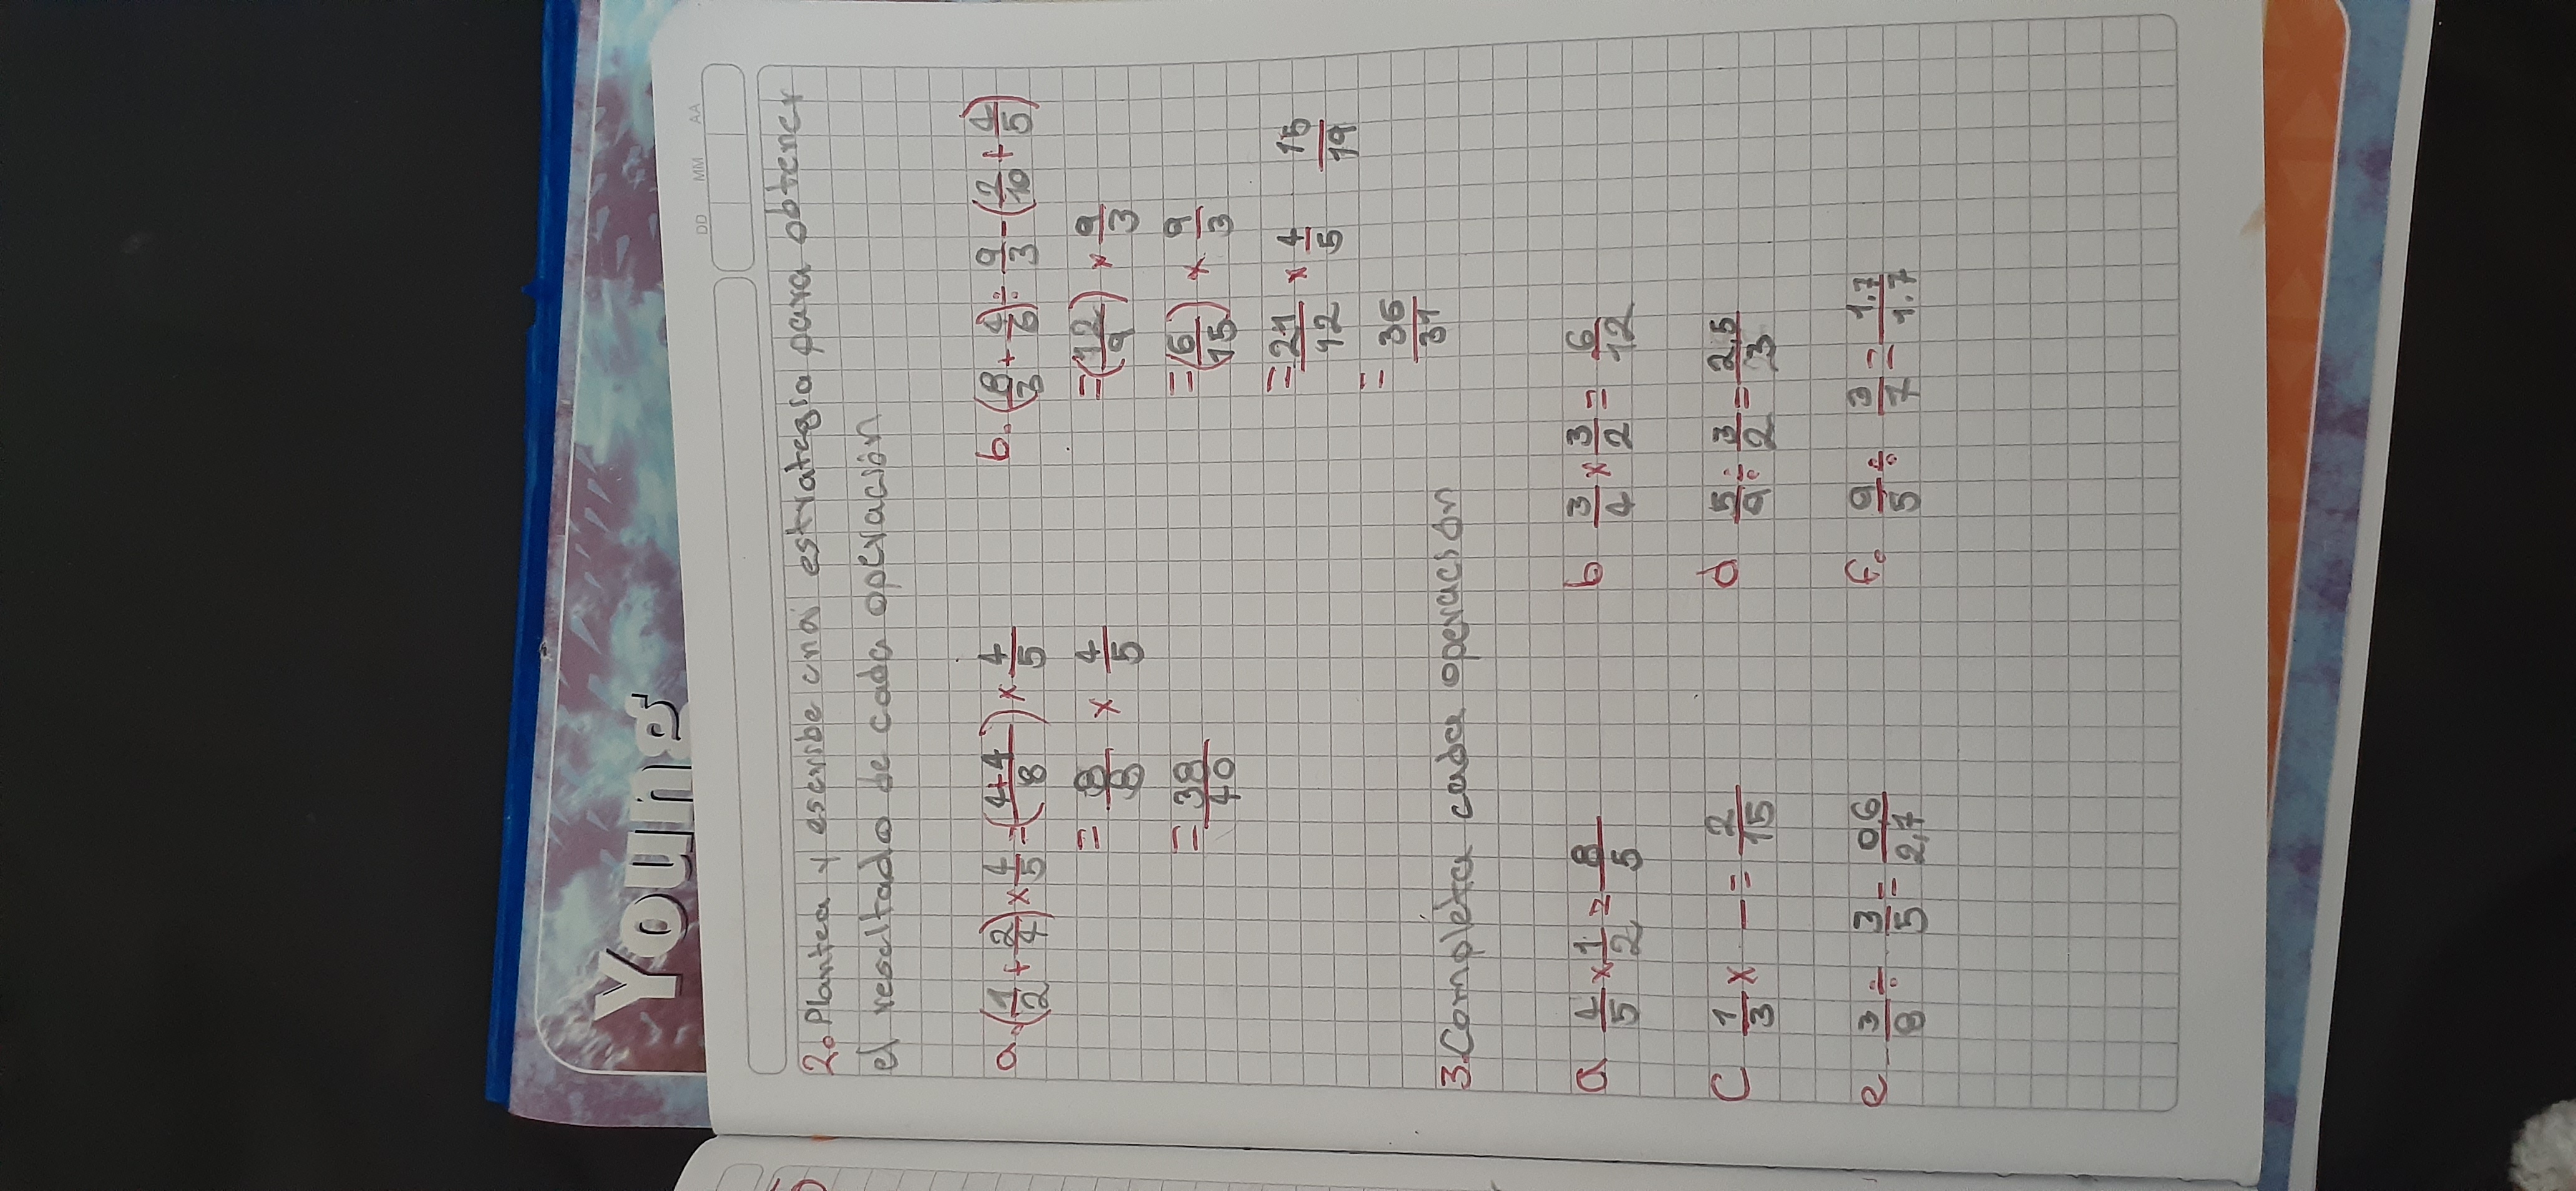 Young
DD MM AA
2. Plantea y escribe una estrategia para obtener
el resultado de cada operación
a. (1/2 + 2/4) × 4/5 = (4+4/8) × 4/5
= 8/8 × 4/5
= 38/40
b. (8/3 + 4/6) ÷ 9/3 - (2/10 + 4/5)
= (12/9) × 9/3
= (6/15) × 9/3
= 21/12 × 4/5 15/19
= 36/31
3. Completa cada operación
a 4/5 × 1/2 = 8/5
b 3/4 × 3/2 = 6/12
c 1/3 × — = 2/15
d 5/9 ÷ 3/2 = 2,5/3
e 3/8 ÷ 3/5 = 0,6/2,7
f. 9/5 ÷ 3/7 = 1.7/1.7